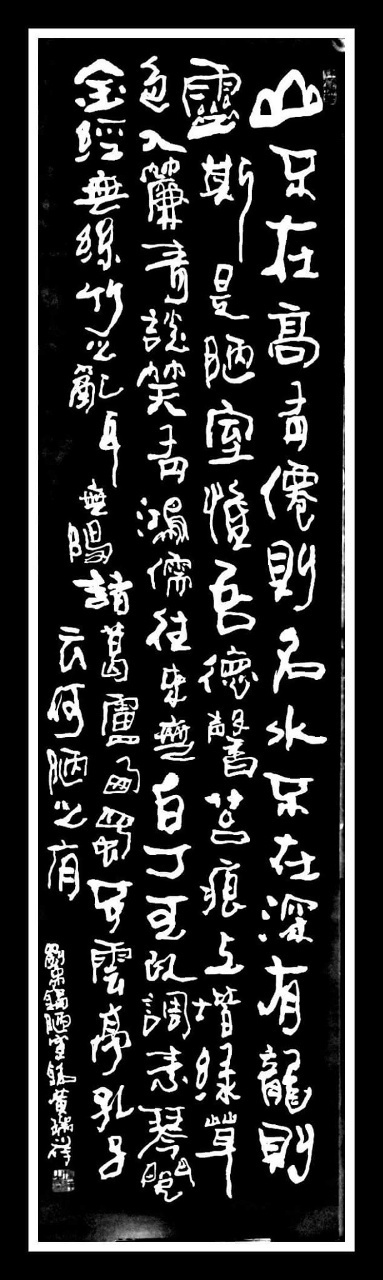 山不在高有僊則名水不在深有龍則
靈斯是陋室惟吾德馨苔痕上堦綠草
色入簾青談笑有鴻儒往來無白丁可以調素琴閱
金經無絲竹之亂耳無陽諸葛廬西蜀子雲亭孔子
云何陋之有
劉禹錫陋室銘黃瑞祥